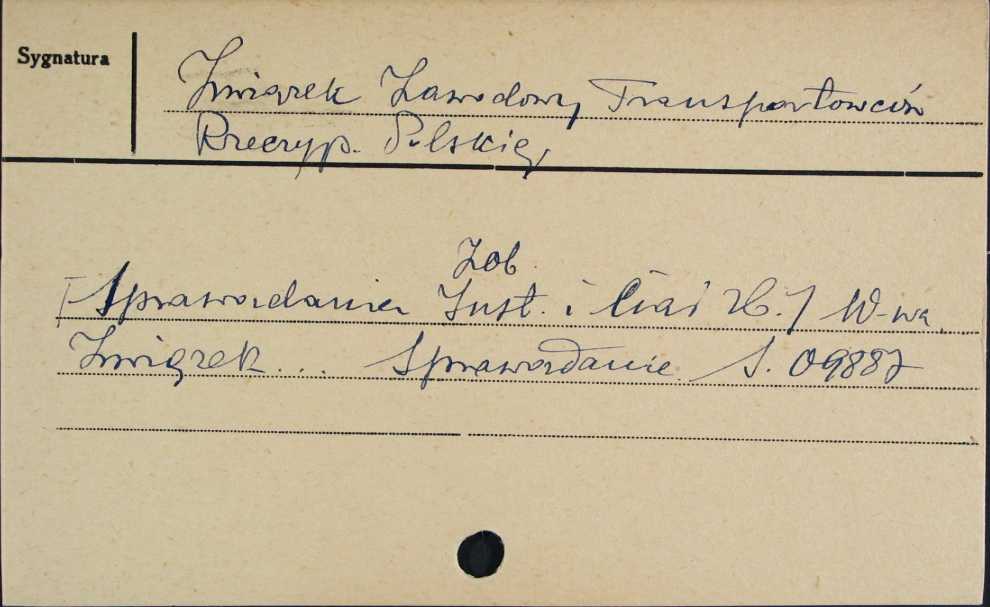 Sygnatura
Związek Zawodowy Transportowców
Rzeczyp. Polskiej
Zob.
Sprawozdania Inst. i Ciał Zb. / W-wa.
Związek ... Sprawozdanie S. 09887